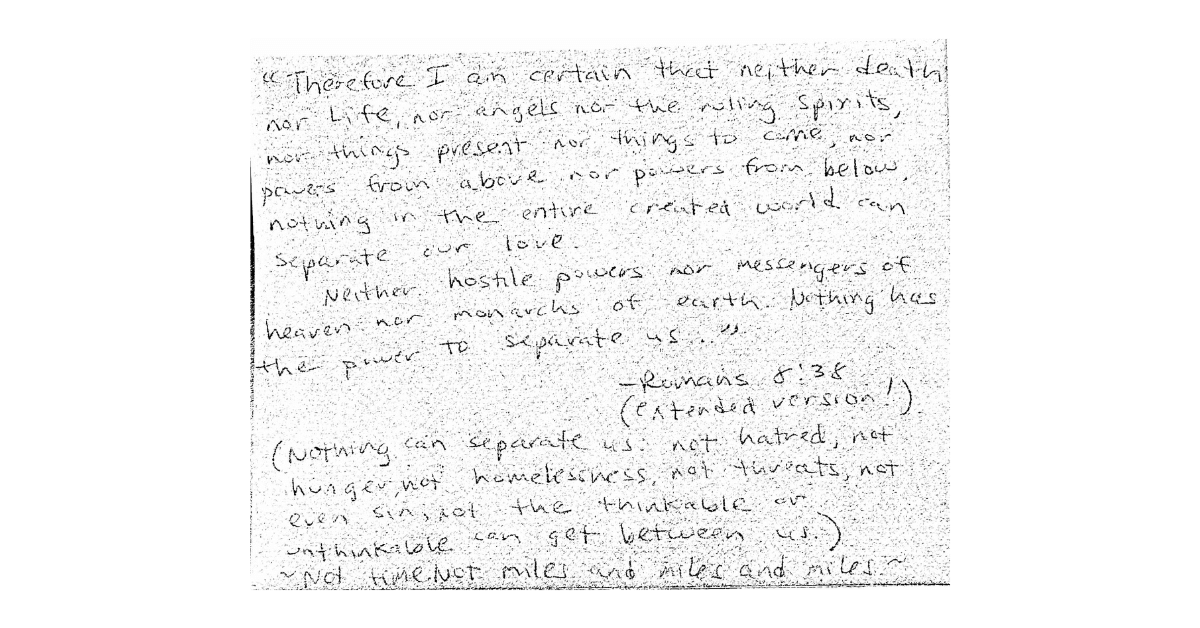 “Therefore I am certain that neither death
nor Life, nor angels nor the ruling spirits,
nor things present nor things to come, nor
powers from above nor powers from below,
nothing in the entire created world can
separate our love.
Neither hostile powers nor messengers of
heaven nor monarchs of earth. Nothing has
the power to separate us...”
-Romans 8:38
(extended version!)
(Nothing can separate us: not hatred, not
hunger, not homelessness, not threats, not
even sin, not the thinkable or
unthinkable can get between us.)
~Not time. Not miles and miles and miles~